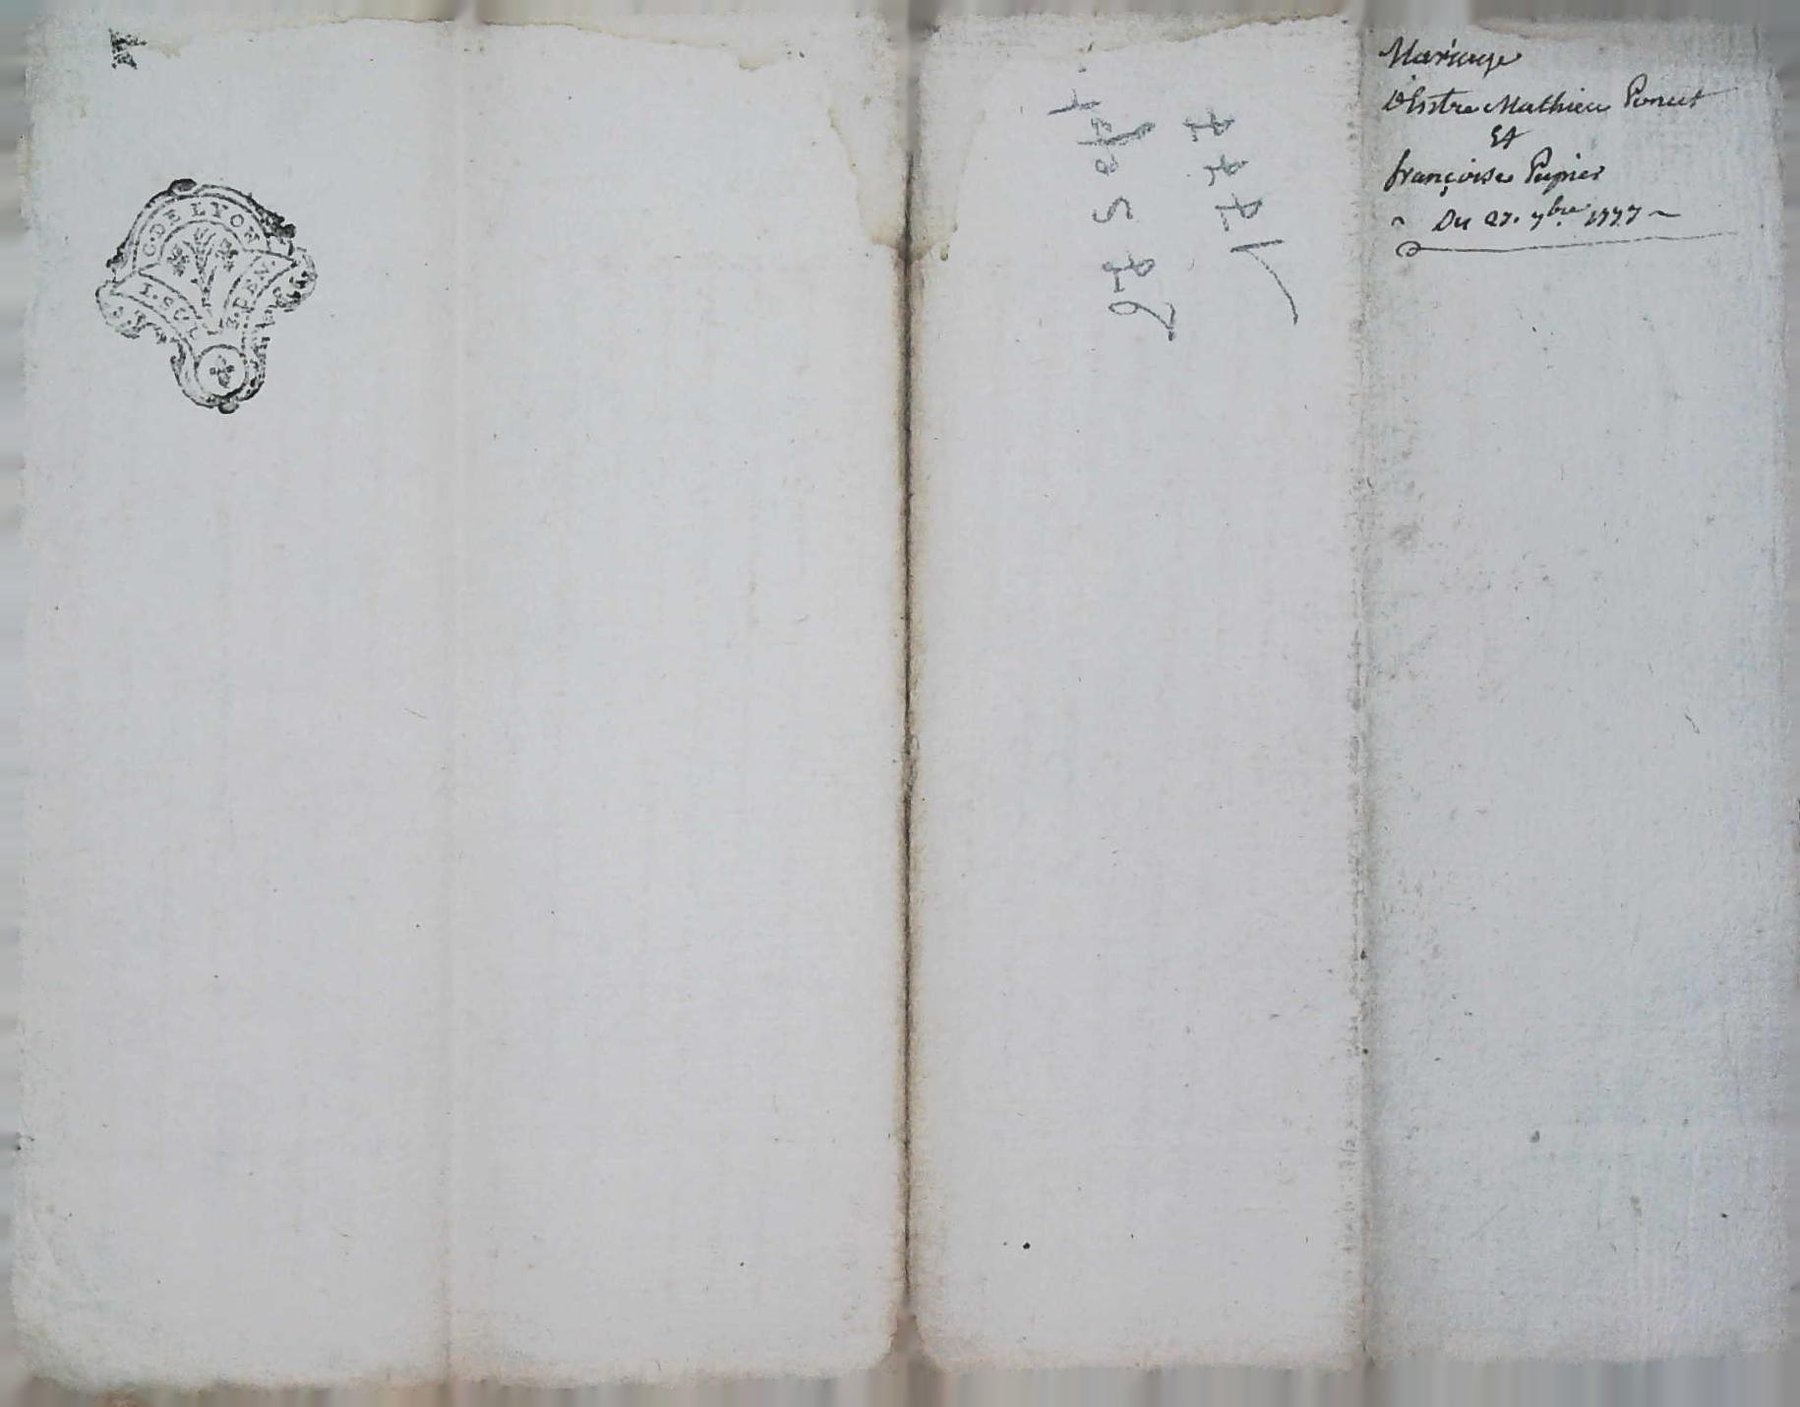 G. DE LYON
Mariage
D'Entre Mathieu Poncet
Et
françoise Pupier
Du 27. 7bre 1777
1777